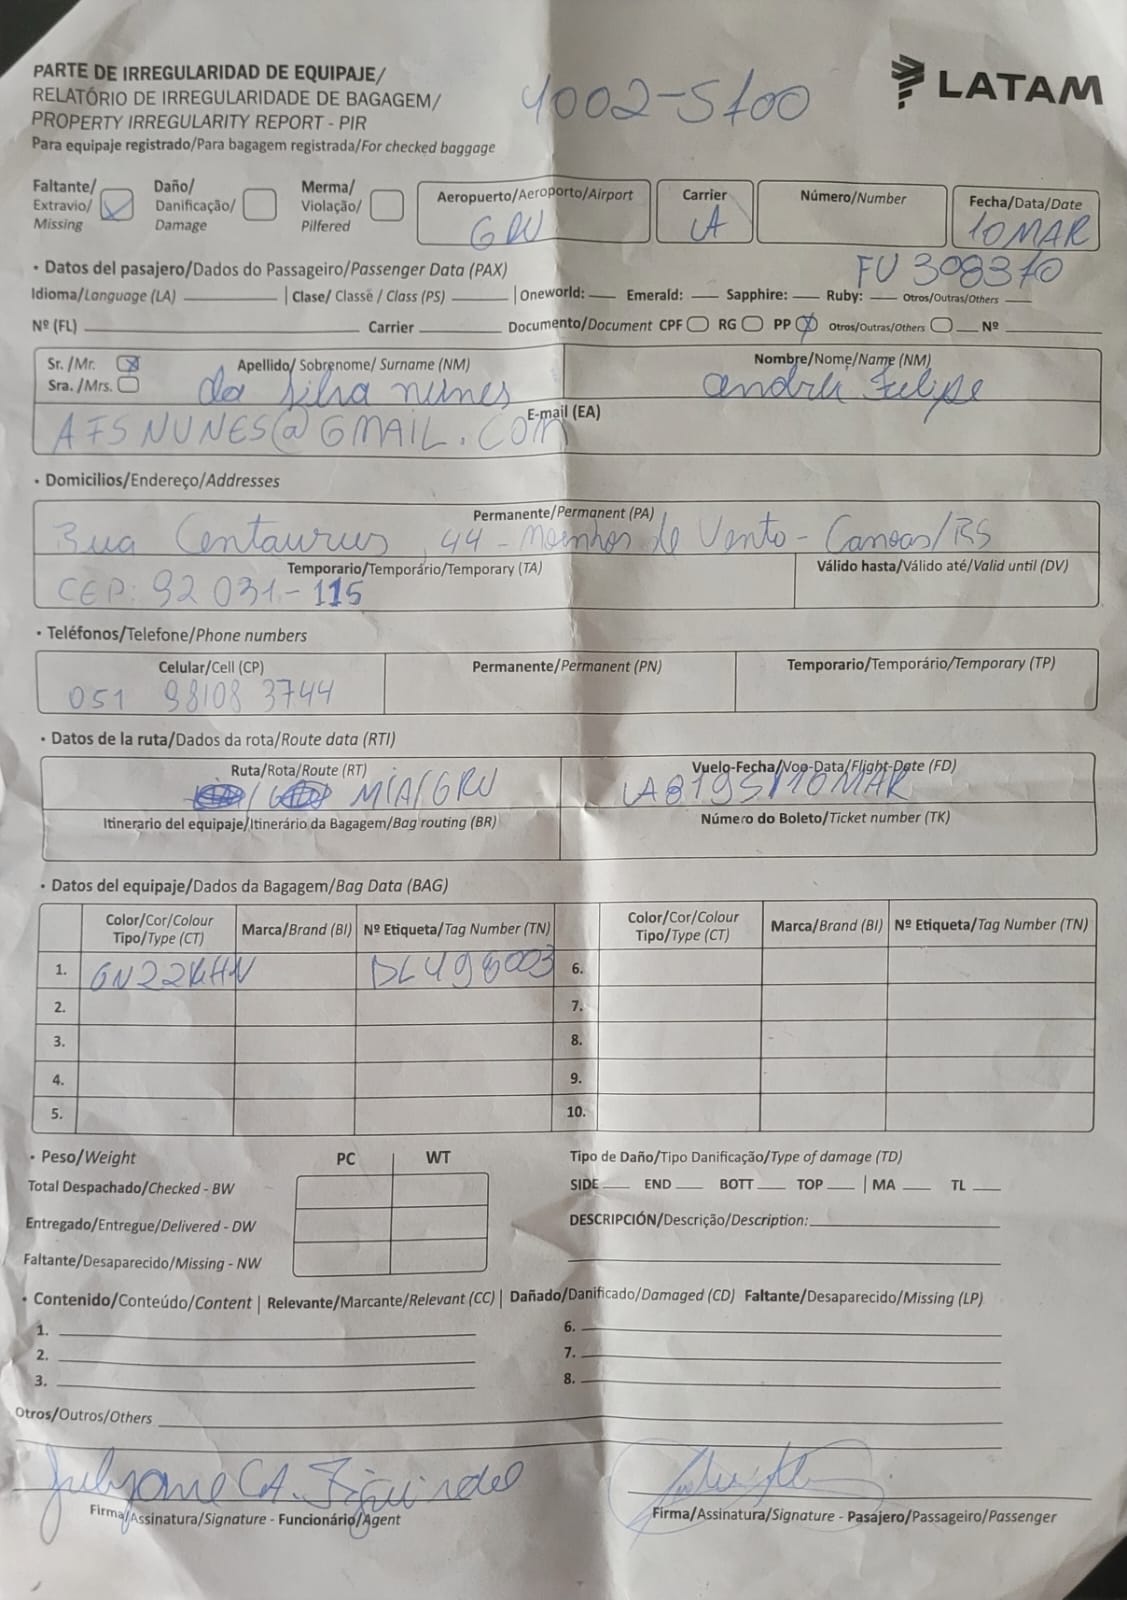 PARTE DE IRREGULARIDAD DE EQUIPAJE/
RELATÓRIO DE IRREGULARIDADE DE BAGAGEM/
PROPERTY IRREGULARITY REPORT - PIR
Para equipaje registrado/Para bagagem registrada/For checked baggage
4002-5700
LATAM
Faltante/ Extravio/ Missing
Daño/ Danificação/ Damage
Merma/ Violação/ Pilfered
Aeropuerto/Aeroporto/Airport GRU
Carrier LA
Número/Number
Fecha/Data/Date 10MAR
• Datos del pasajero/Dados do Passageiro/Passenger Data (PAX)
FU 308370
Idioma/Language (LA) Clase/ Classe / Class (PS) Oneworld: Emerald: Sapphire: Ruby: Otros/Outras/Others
Nº (FL) Carrier Documento/Document CPF RG PP Otros/Outras/Others Nº
Sr. /Mr.
Sra. /Mrs.
Apellido/ Sobrenome/ Surname (NM)
da Silva nunes
Nombre/Nome/Name (NM)
andré Felipe
E-mail (EA)
AFSNUNES@GMAIL.COM
• Domicilios/Endereço/Addresses
Permanente/Permanent (PA)
Rua Centaurus, 44 - Moinhos de Vento - Canoas/RS
Temporario/Temporário/Temporary (TA)
CEP: 92 031-115
Válido hasta/Válido até/Valid until (DV)
• Teléfonos/Telefone/Phone numbers
Celular/Cell (CP) Permanente/Permanent (PN) Temporario/Temporário/Temporary (TP)
051 98108 3744
• Datos de la ruta/Dados da rota/Route data (RTI)
Ruta/Rota/Route (RT) Vuelo-Fecha/Voo-Data/Flight-Date (FD)
MIA/GRU LA8195/10MAR
Itinerario del equipaje/Itinerário da Bagagem/Bag routing (BR) Número do Boleto/Ticket number (TK)
• Datos del equipaje/Dados da Bagagem/Bag Data (BAG)
Color/Cor/Colour Tipo/Type (CT) Marca/Brand (BI) Nº Etiqueta/Tag Number (TN) Color/Cor/Colour Tipo/Type (CT) Marca/Brand (BI) Nº Etiqueta/Tag Number (TN)
1. DL498003 6.
2. 7.
3. 8.
4. 9.
5. 10.
• Peso/Weight PC WT
Total Despachado/Checked - BW
Entregado/Entregue/Delivered - DW
Faltante/Desaparecido/Missing - NW
Tipo de Daño/Tipo Danificação/Type of damage (TD)
SIDE END BOTT TOP MA TL
DESCRIPCIÓN/Descrição/Description:
• Contenido/Conteúdo/Content | Relevante/Marcante/Relevant (CC) | Dañado/Danificado/Damaged (CD) Faltante/Desaparecido/Missing (LP)
1. 6.
2. 7.
3. 8.
Otros/Outros/Others
Firma/Assinatura/Signature - Funcionário/Agent
Firma/Assinatura/Signature - Pasajero/Passageiro/Passenger